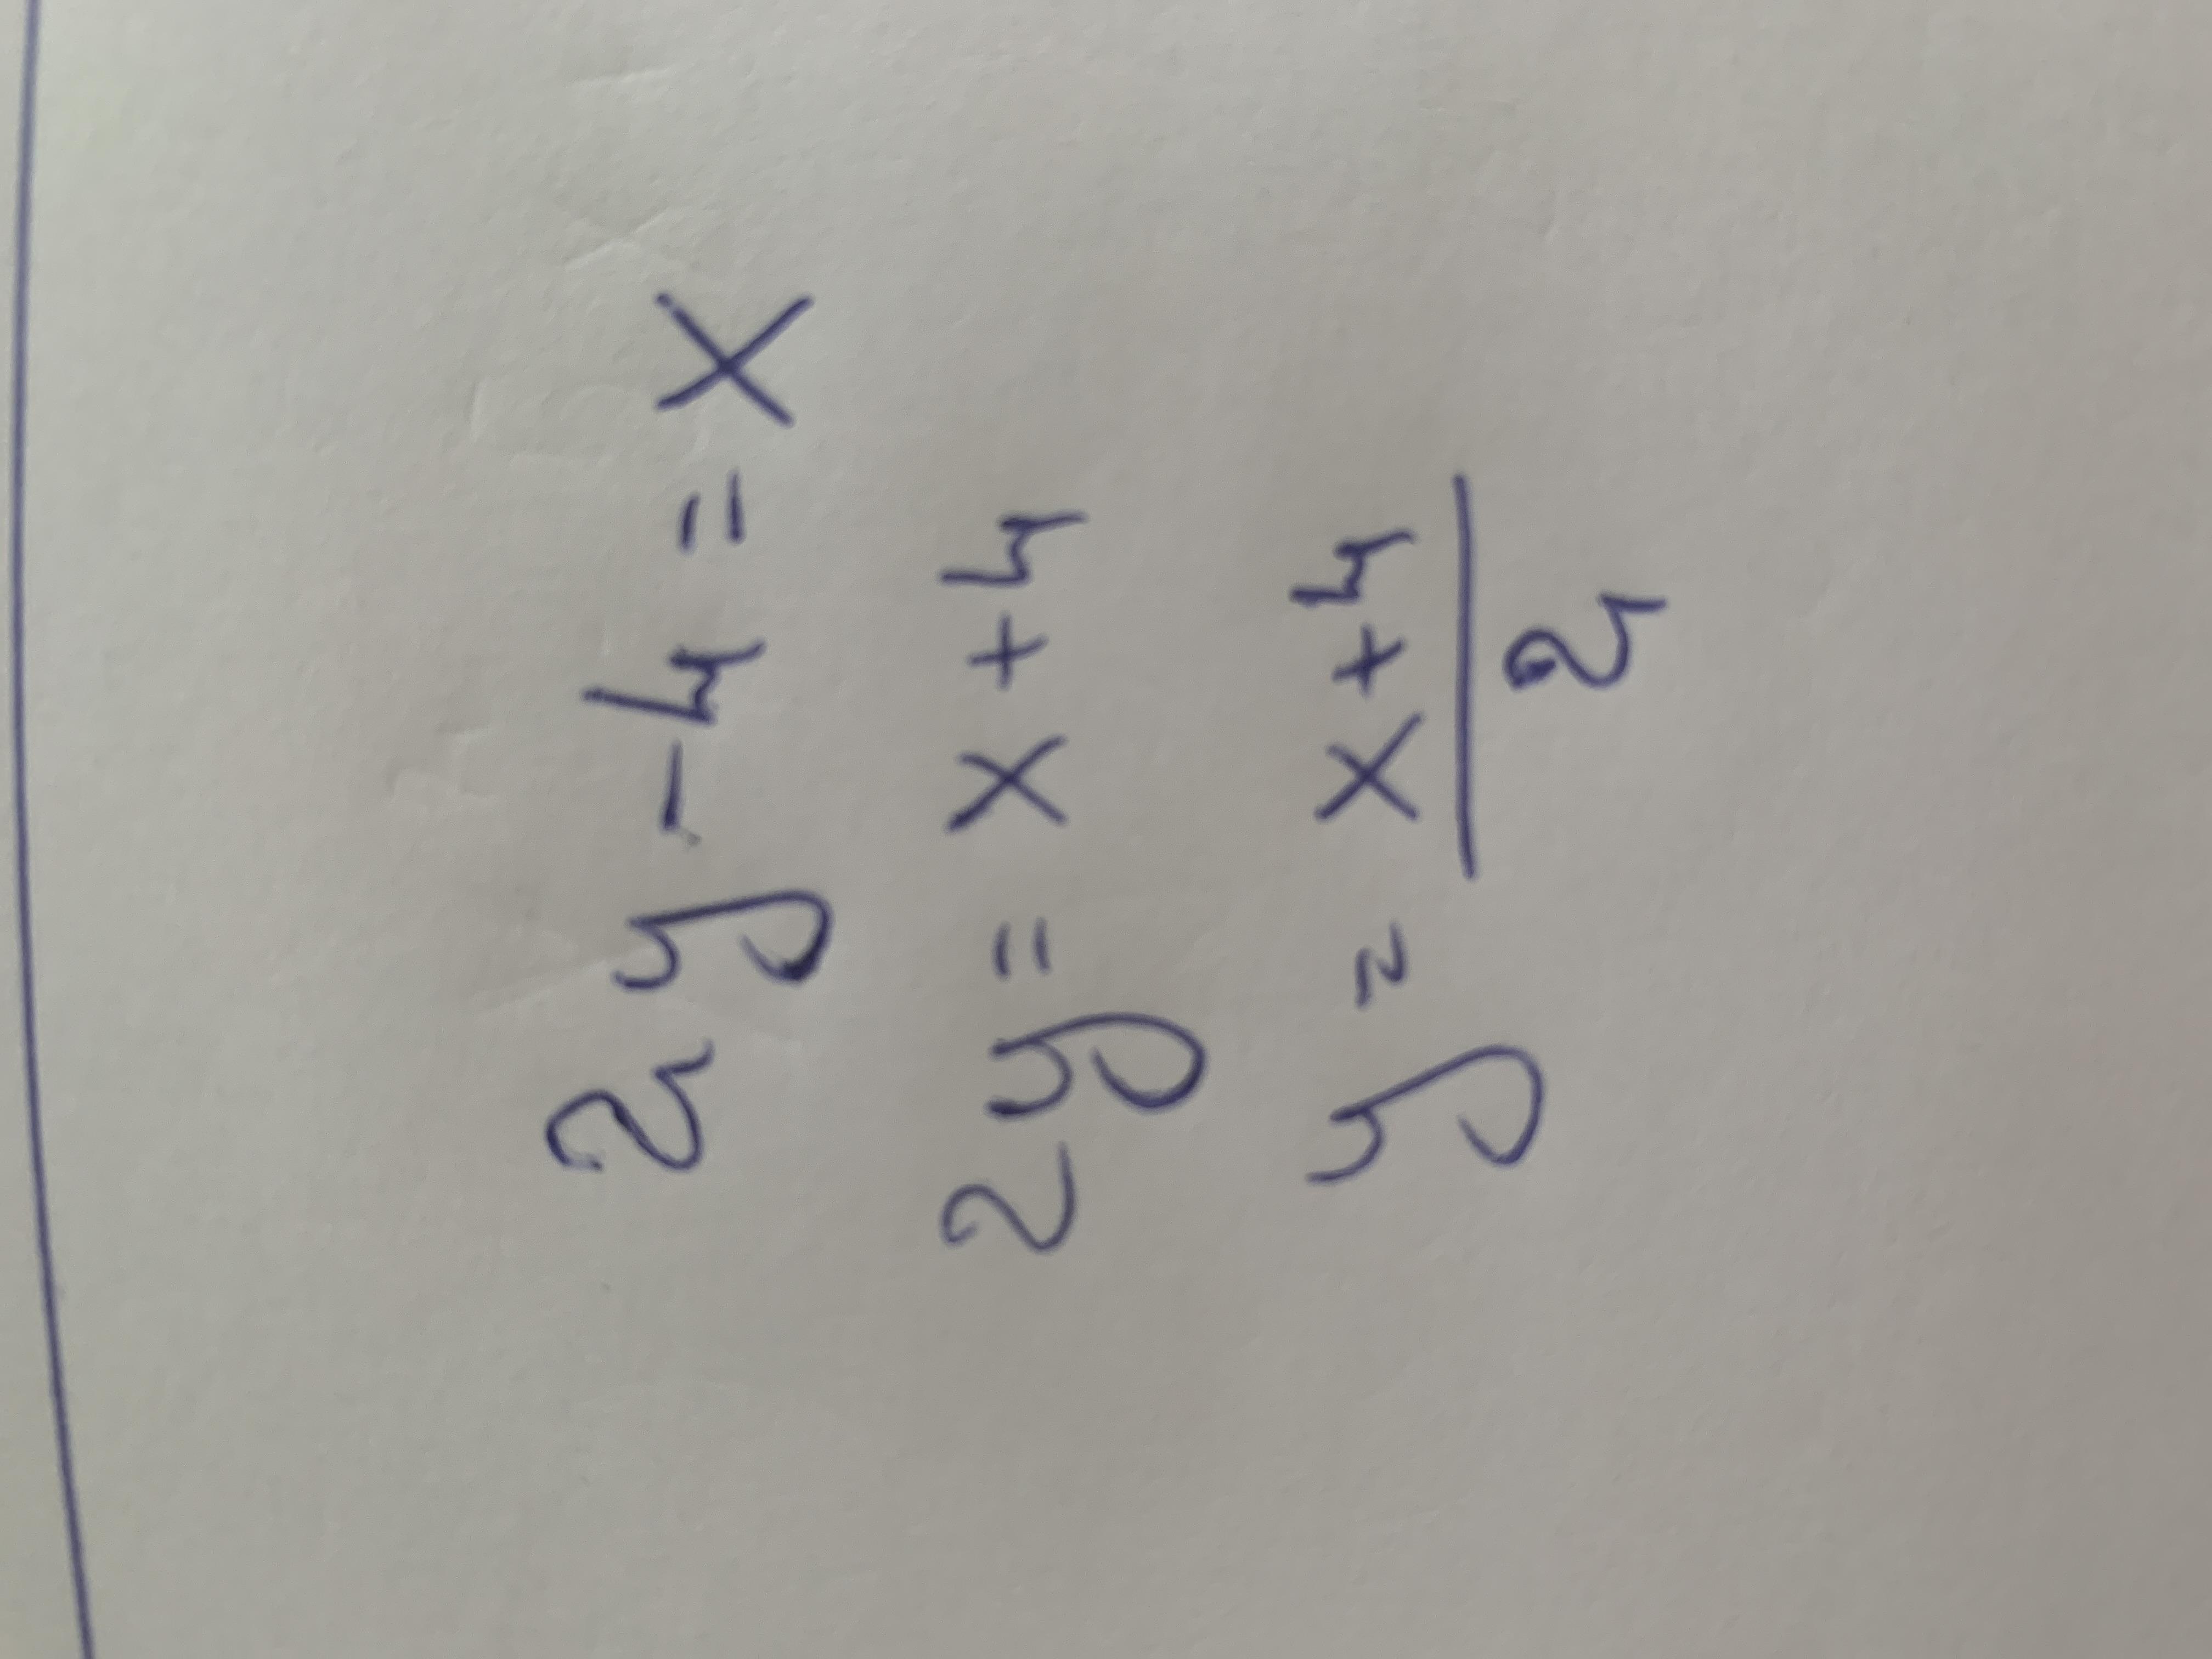 2y - 4 = x
2y = x + 4
y = x + 4
2